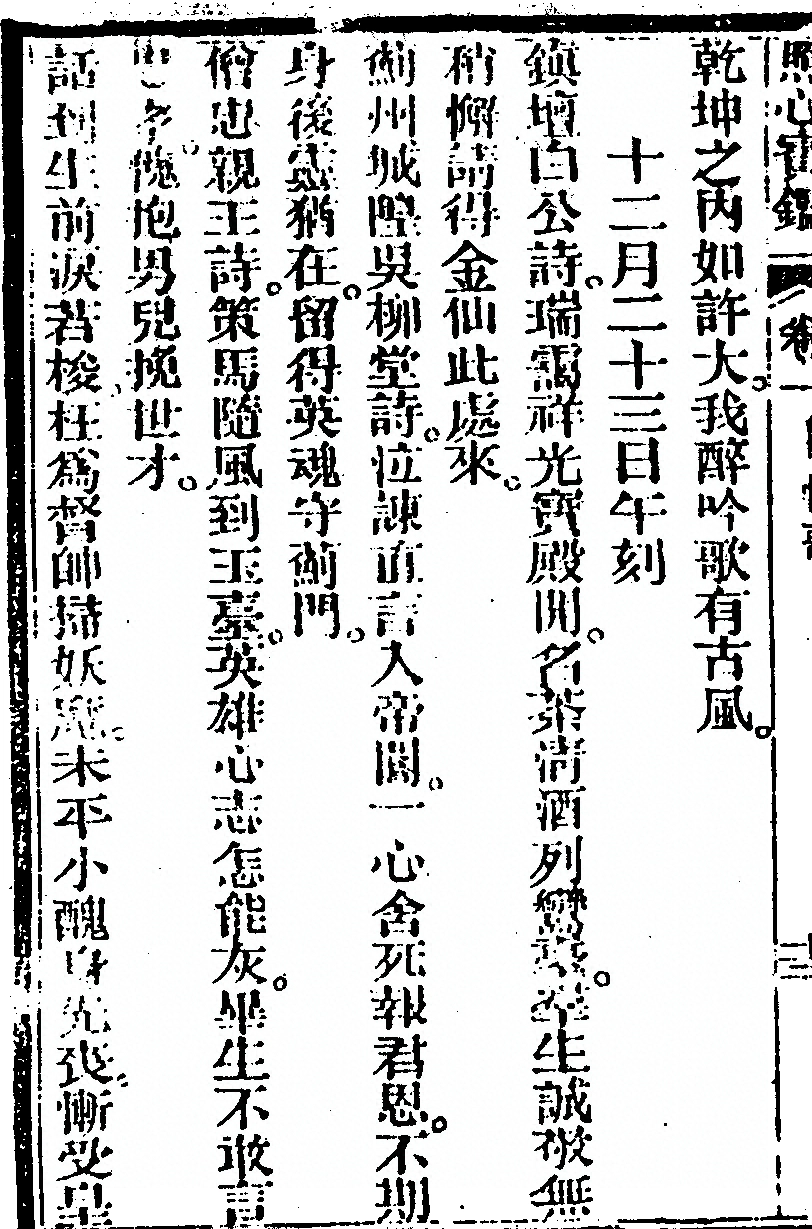 照心寶鑑 卷一
乾坤之內如許大。我醉吟歌有古風。
十二月二十三日午刻
鎮壇白公詩。瑞靄祥光寶殿開。名茶清酒列鸞臺。畢生誠敬無
稍懈請得金仙此處來。
薊州城隍吳柳堂詩。泣諫直言入帝閽。一心舍死報君恩。不期
身後靈猶在。留得英魂守薊門。
僧忠親王詩。策馬隨風到玉臺。英雄心志怎能灰。畢生不敢言
忠孝。愧抱男兒挽世才。
話到生前淚若梭。枉為督師掃妖魔。未平小醜身先喪。慚受皇